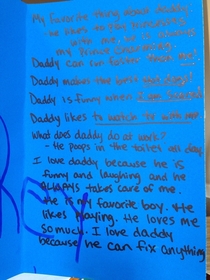 My favorite thing about daddy
- he likes to play
with me, he is always
my Prince Charming.
Daddy can
Daddy makes the best hot dogs!
Daddy is funny when I am
Daddy likes to watch TV with me!
What does daddy do at work?
- He poops in the toilet all day
I love daddy because he is
funny and laughing and he
ALWAYS takes care of me.
He is my favorite boy. He
likes playing. He loves me
so much. I love daddy
because he can fix anything